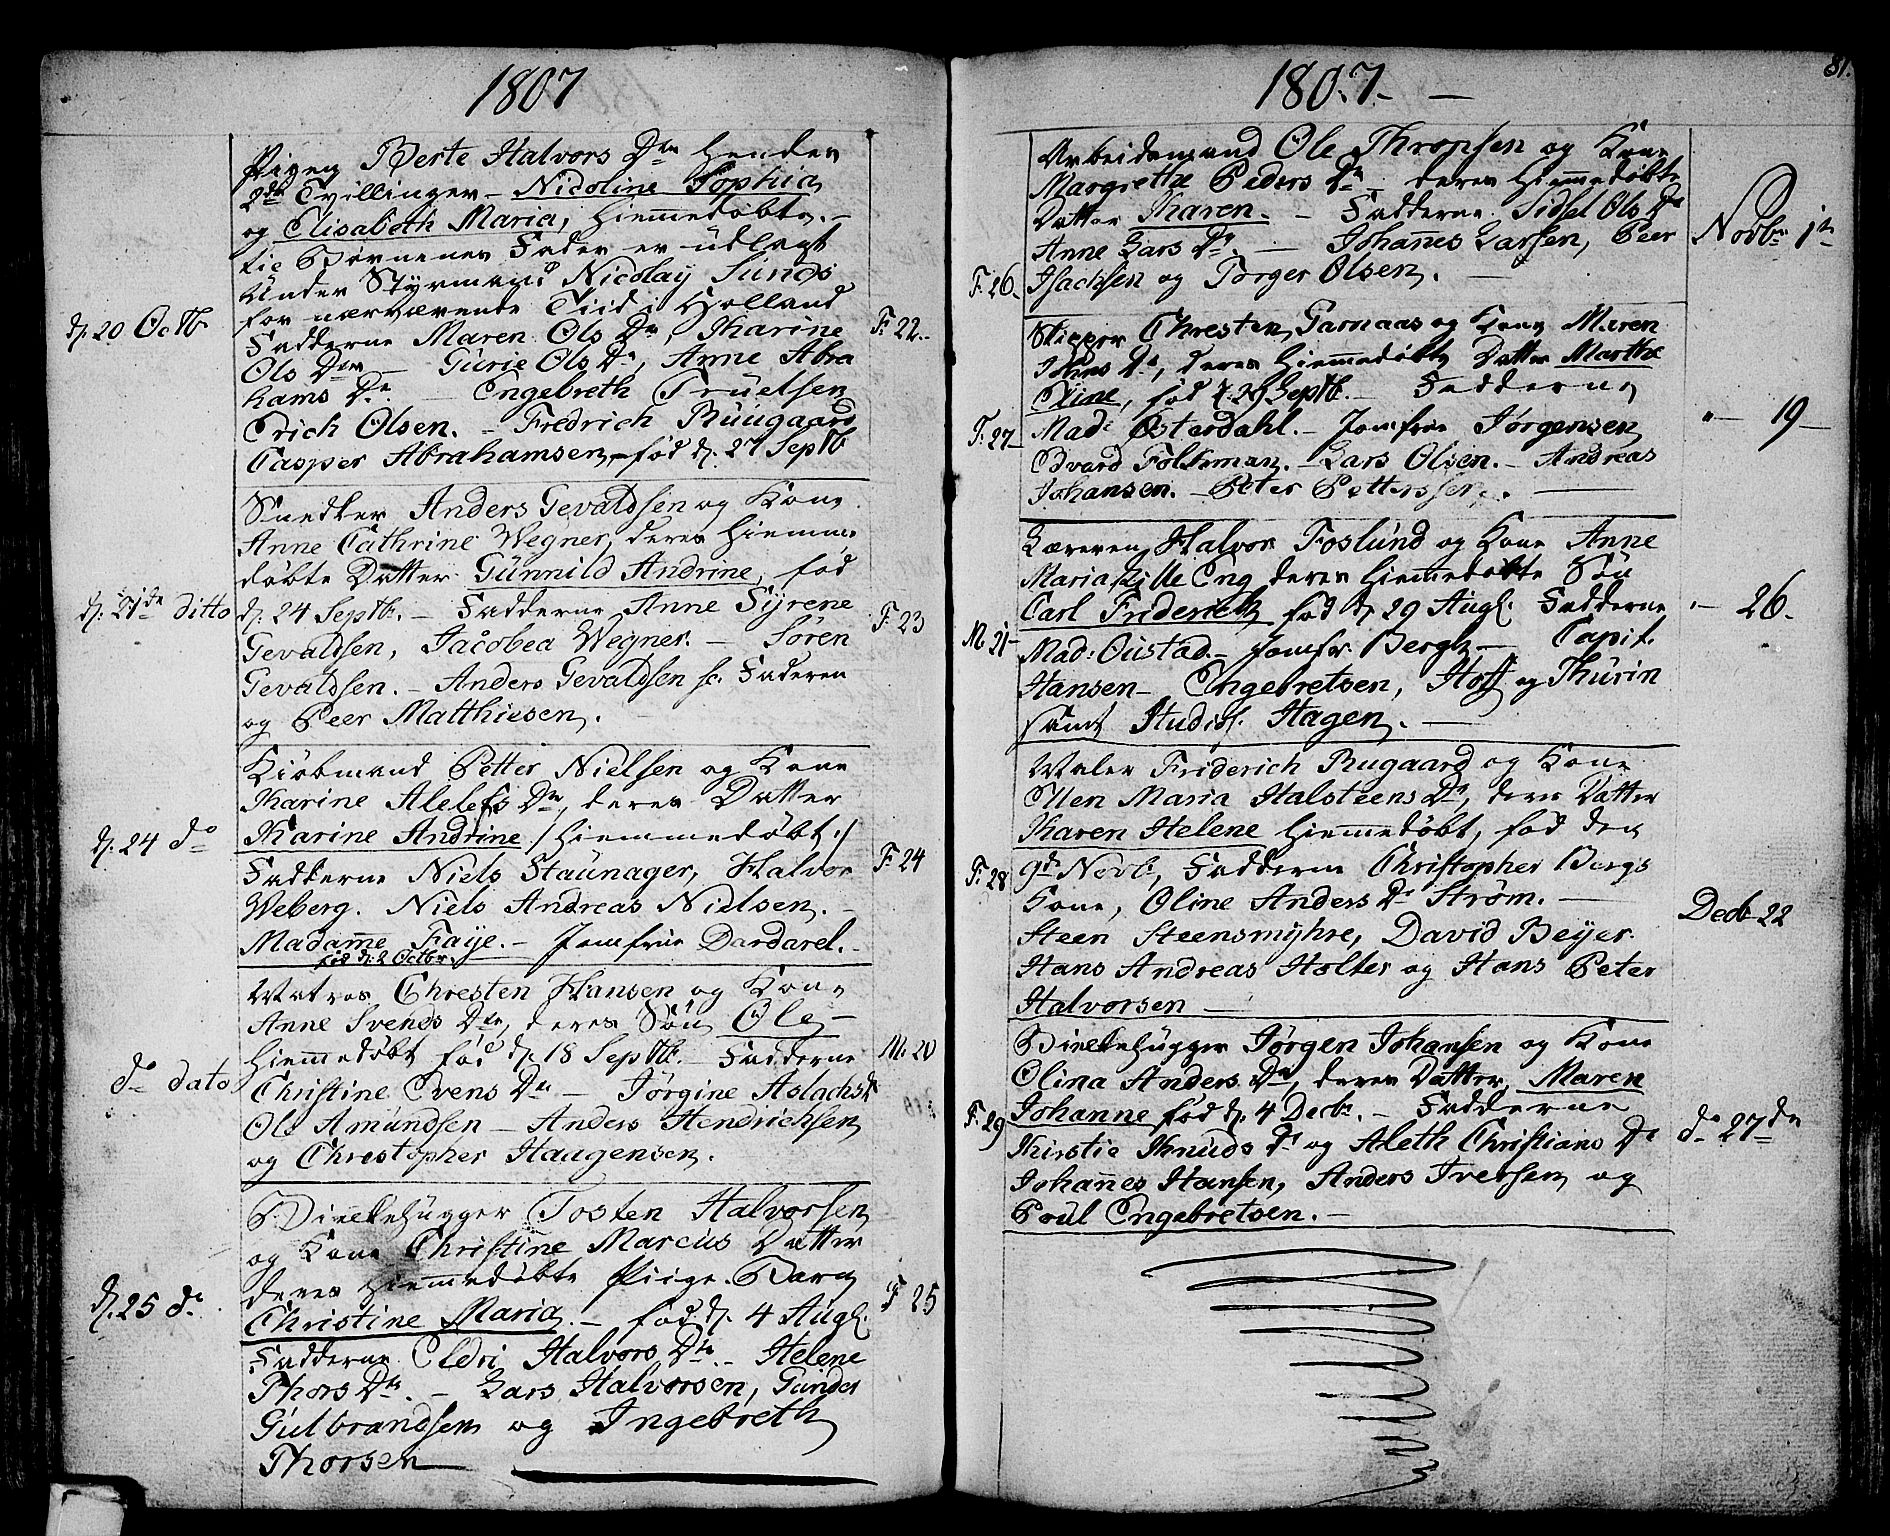 1807
Pigen Berte Halvors Dtr hendes
2de Tvillinger - Nicoline Sophia
og Elisabeth Maria, hiemmedøbte. -
til Børnenes Fader er udlagt
Under Styrmand Nicolay Lunds
for nærværende Tiid i Holland
d. 20 Octb.
Fadderne Maren Ols Dr, Karine
F. 22.
Ols Dtr - Gurie Ols Dr, Anne Abra
hams Dr. - Engebreth Truelsen
Erich Olsen. - Fredrich Ruugaard
Casper Abrahamsen, - fød d. 27 Septb
Snedker Anders Gevaldsen og Kone
Anne Cathrine Wegner, deres hiemme
døbte Datter Gunnild Andrine, fød
d. 21de ditto
d. 24 Septb. - Fadderne Anne Syrene
F. 23
Gevaldsen, Jacobea Wegner. - Søren
Gevaldsen. - Anders Gevaldsen sc. Faderen
og Peer Matthiesen.
Kiøbmand Petter Nielsen og Kone
Karine Alelefs Dtr, deres Datter
d. 24 do
Karine Andrine /: hiemmedøbt :/
Fadderne Niels Staunager, Halvor
F. 24
Weberg. Niels Andreas Nielsen. -
Madame Faye. - Jomfrue Dardarel. -
fød d. 2 Octbr.
Matros Chresten Hansen og Kone
Anne Svends Dtr, deres Søn Ole -
hiemmedøbt fød d. 18 Septb. - Fadderne
M. 20
do dato
Christine Evens Dtr - Jørgine Aslachs Dr
Ole Amundsen - Anders Hendrichsen
og Chrestopher Haugensen.
Bielkehugger Tosten Halvorsen
og Kone Christine Marcus Datter
deres hiemmedøbte Piige-Barn
d. 25 do
Christine Maria. - fød d. 4 Augl.
F 25
Fadderne Eldri Halvors Dtr. - Helene
Thors Dtr. - Lars Halvorsen, Gunder
Gulbrandsen og Ingebreth
Thorsen
1807.
81.
Arbeidsmand Ole Thropsen og Kone
Margrethe Peders Dr, deres hiemmedøbte
Datter Karen. - Fadderne Sidsel Ols Dr
Novbr 1te
Anne Lars Dr. - Johanes Larsen, Peer
F. 26.
Isachsen og Torger Olsen.
Skipper Chresten Garnaas og Kone Maren
Johns Dr, deres hiemmedøbte Datter Marthe
Eline, fød d. 29 Septb. - Fadderne
" - 19 -
F. 27 -
Mad. Østerdahl. - Jomfrue Jørgensen
Edvard Folkman. - Lars Olsen. - Andreas
Johansen. - Peter Petterssen.
Læreren Halvor Foslund og Kone Anne
Maria Lille Eng deres hiemmedøbte Søn
Carl Friderich fød d. 29 Augl. Fadderne
" - 26.
M. 21 -
Mad: Oustad. - Jomfr. Bergh - Capit.
Hansen - Engebretsen, Hoff og Thurin
samt Studios. Hagen.
Maler Friderich Rugaard og Kone
Ellen Maria Halsteens Dr, deres Datter
Karen Helene hiemmedøbt, fød den
F. 28
9de Novb, Fadderne Christopher Bergs
Kone, Oline Anders Dr Strøm. -
Decb 22
Steen Steensmyhre, David Beyer.
Hans Andreas Holter og Hans Peter
Halvorsen
Bielkehugger Jørgen Johansen og Kone
Olina Anders Dtr, deres Datter Maren
Johanne fød d. 4 Decbr. - Fadderne
F. 29
do 27de
Kirstie Knuds Dr og Aleth Christians Dr
Johanes Hansen, Anders Iversen og
Poul Engebretsen. -